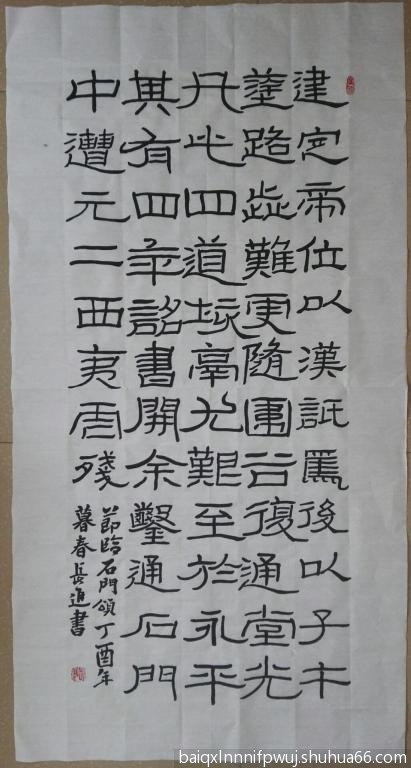 建定帝位以漢詆焉後以子午
塗路歰難更隨圍谷復通堂光
凡此四道垓鬲尤艱至於永平
其有四年詔書開余鑿通石門
中遭元二西夷虐殘
節臨石門頌丁酉年
暮春長進書
baiqxlnnnifpwuj.shuhua66.com